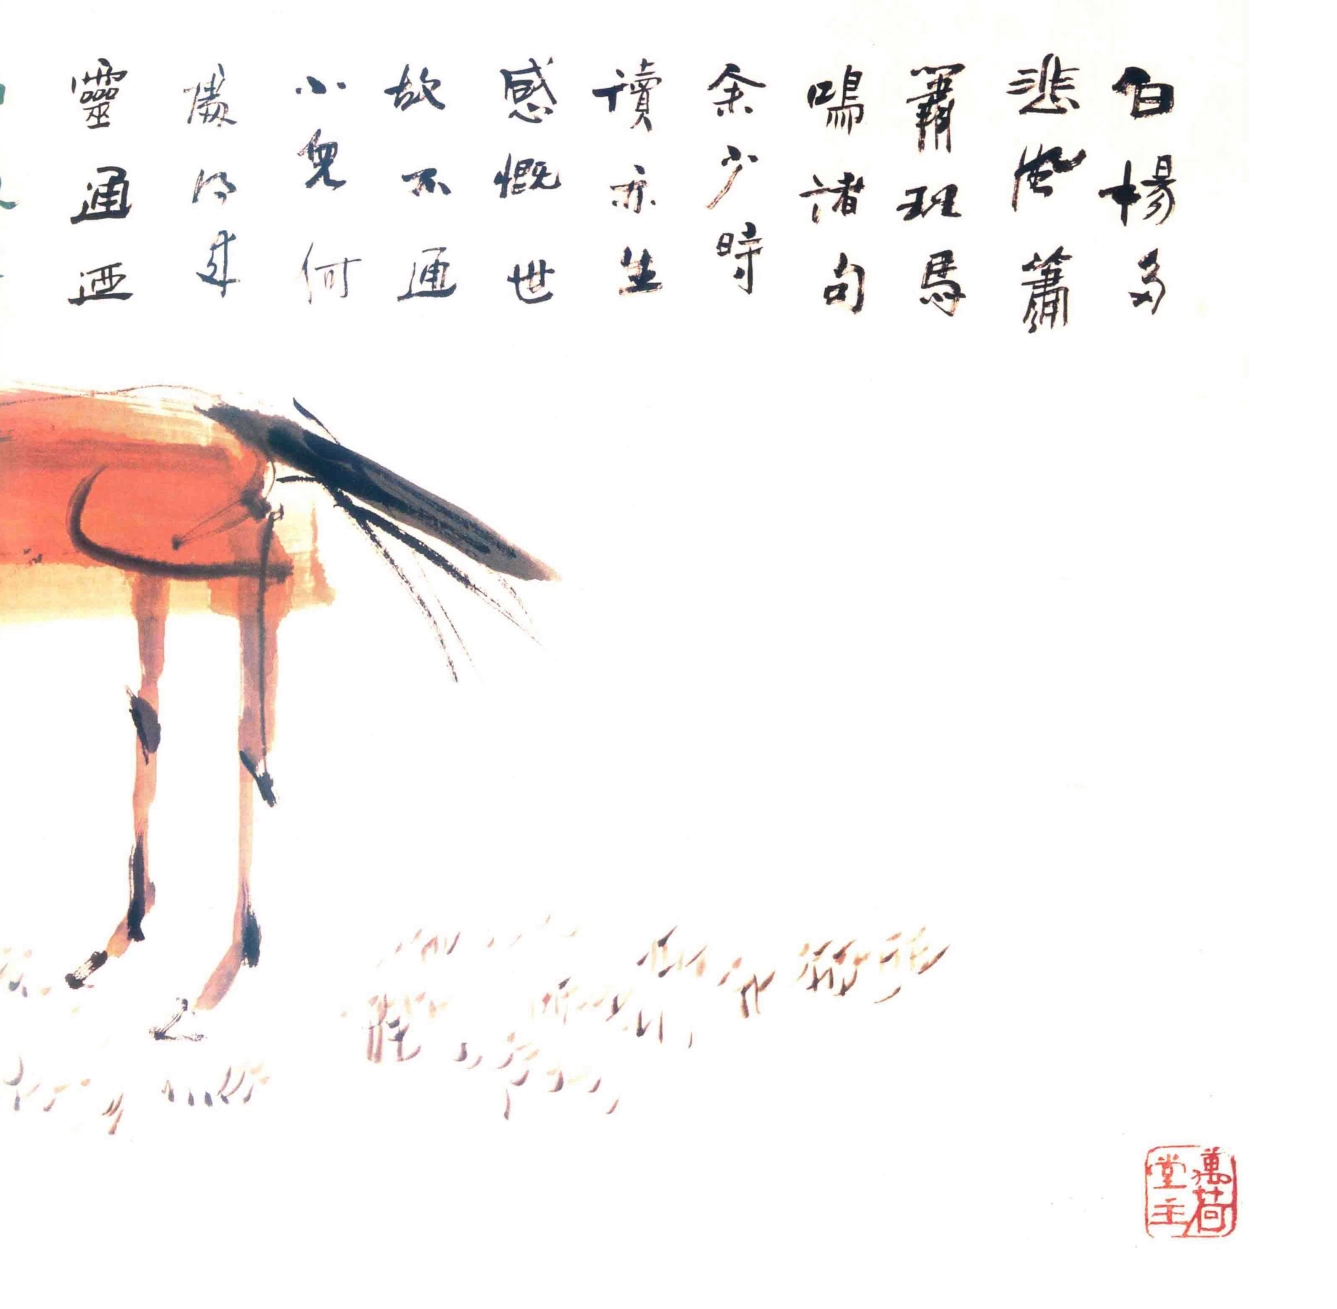 白楊多
悲風蕭
蕭班馬
鳴諸句
余少時
讀亦生
感慨世
故不通
小兒何
處得來
靈通
萬荷堂主